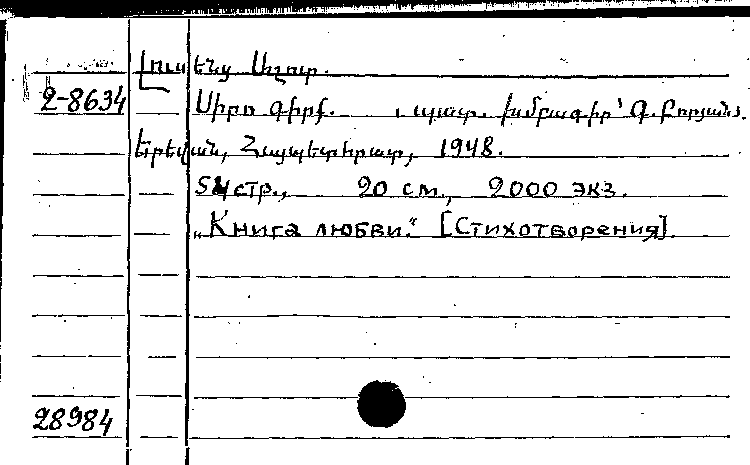 Լուսենց Աշոտ.
2-8634
Սիրո գիրք. պատ. խմբագիր՝ Գ. Բորյանս.
Երեվան, Հայպետհրատ, 1948.
54 стр., 20 см., 2000 экз.
„Книга любви.“ [Стихотворения].
28984